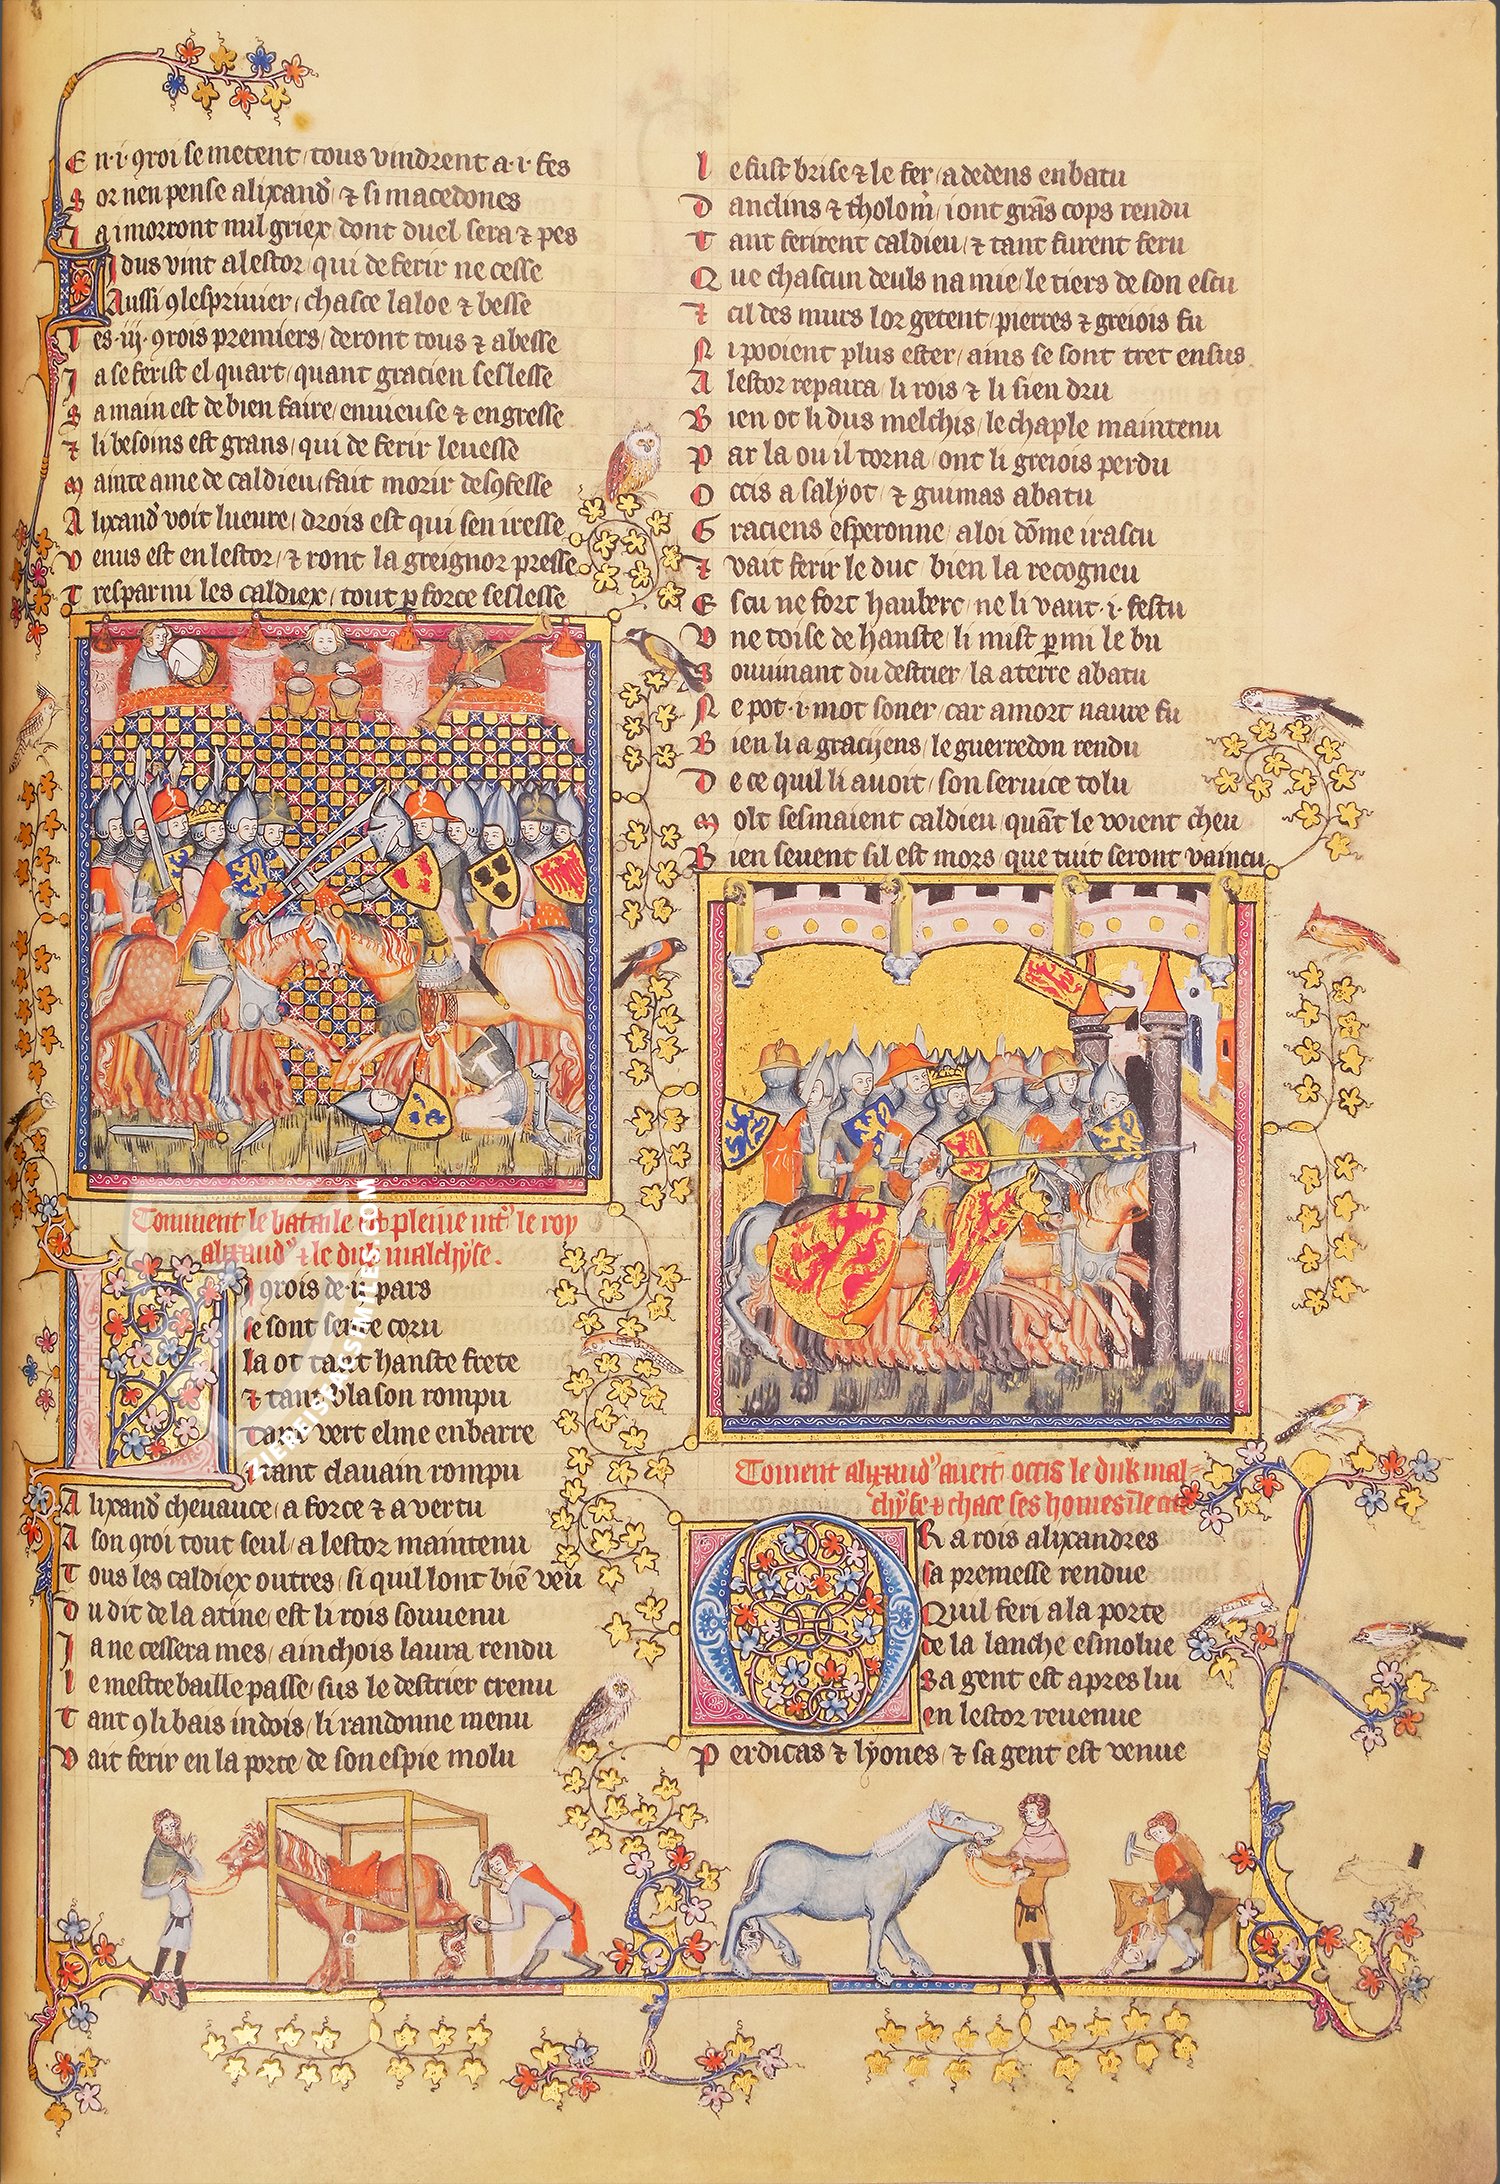 E n·i·ꝯroi se metent / tous vindrent a·i·fes
S or nen pense alixandʼ ⁊ si macedones
J a i morront mil griex / dont duel sera ⁊ pes
L i dus vint a lestor / qui de ferir ne cesse
Aussi ꝯ lesprivier / chasce laloe ⁊ besse
L es·iij·ꝯrois premiers / deront tous ⁊ abesse
J a se ferist el quart / quant gracien seslesse
S a main est de bien faire / envieuse ⁊ engresse
⁊ li besoins est grans / qui de ferir levesse
M ainte ame de caldieu / fait morir desꝯfesse
A lixandʼ voit lueure / drois est qui sen iresse
V enus est en lestor / ⁊ ront la greignor presse
T resparmi les caldiex / tout ꝑ force seslesse
Comment le bataile est pleine intʼ le roy
alixandʼ ⁊ le duk malchyse.
L i ꝯrois de·ii·pars
se sont sevre coru
la ot tant hanste frete
⁊ tant blason rompu
tant vert elme enbarre
⁊ tant clavain rompu
A lixandʼ chevauce / a force ⁊ a vertu
A son ꝯroi tout seul / a lestor maintenu
T ous les caldiex outres / si quil lont biē veu
D u dit de la atine / est li rois souvenu
J a ne cessera mes / ainchois laura rendu
L e mestre baille passe / sus le destrier crenu
T ant ꝯ li bais indois / li randonne menu
V ait ferir en la porte / de son espie molu
L e fust brise ⁊ le fer / a dedens enbatu
D anclins ⁊ tholomʼ / i ont grās cops rendu
T ant ferirent caldieu / ⁊ tant furent feru
Q ue chascun deuls na mie / le tiers de son escu
⁊ cil des murs lor getent / pierres ⁊ greiois fu
N i pooient plus ester / ains se sont tret ensus
A lestor repaira / li rois ⁊ li sien dru
B ien ot li dus melchis / le chaple maintenu
P ar la ou il torna / ont li greiois perdu
O ccis a salyot / ⁊ guimas abatu
G raciens esperonne / a loi dōme irascu
⁊ vait ferir le duc / bien la recogneu
E scu ne fort hauberc / ne li vaut·i·festu
V ne toise de hanste / li mist ꝑmi le bu
S ouvinant du destrier / la a terre abatu
N e pot·i·mot soner / car a mort navre fu
B ien li a graciyens / le guerredon rendu
D e ce quil li avoit / son service tolu
M olt sesmaient caldieu / quāt le voient cheu
B ien sevent sil est mors / que tuit seront vaincu
Coment alixandʼ avert occis le duk mal
chyse ⁊ chace ses homes
O R a rois alixandres
sa premesse rendue
Quil feri a la porte
de la lanche esmolue
Sa gent est apres lui
en lestor revenue
P erdicas ⁊ lyones / ⁊ sa gent est venue
ZIEREIS FACSIMILES.COM